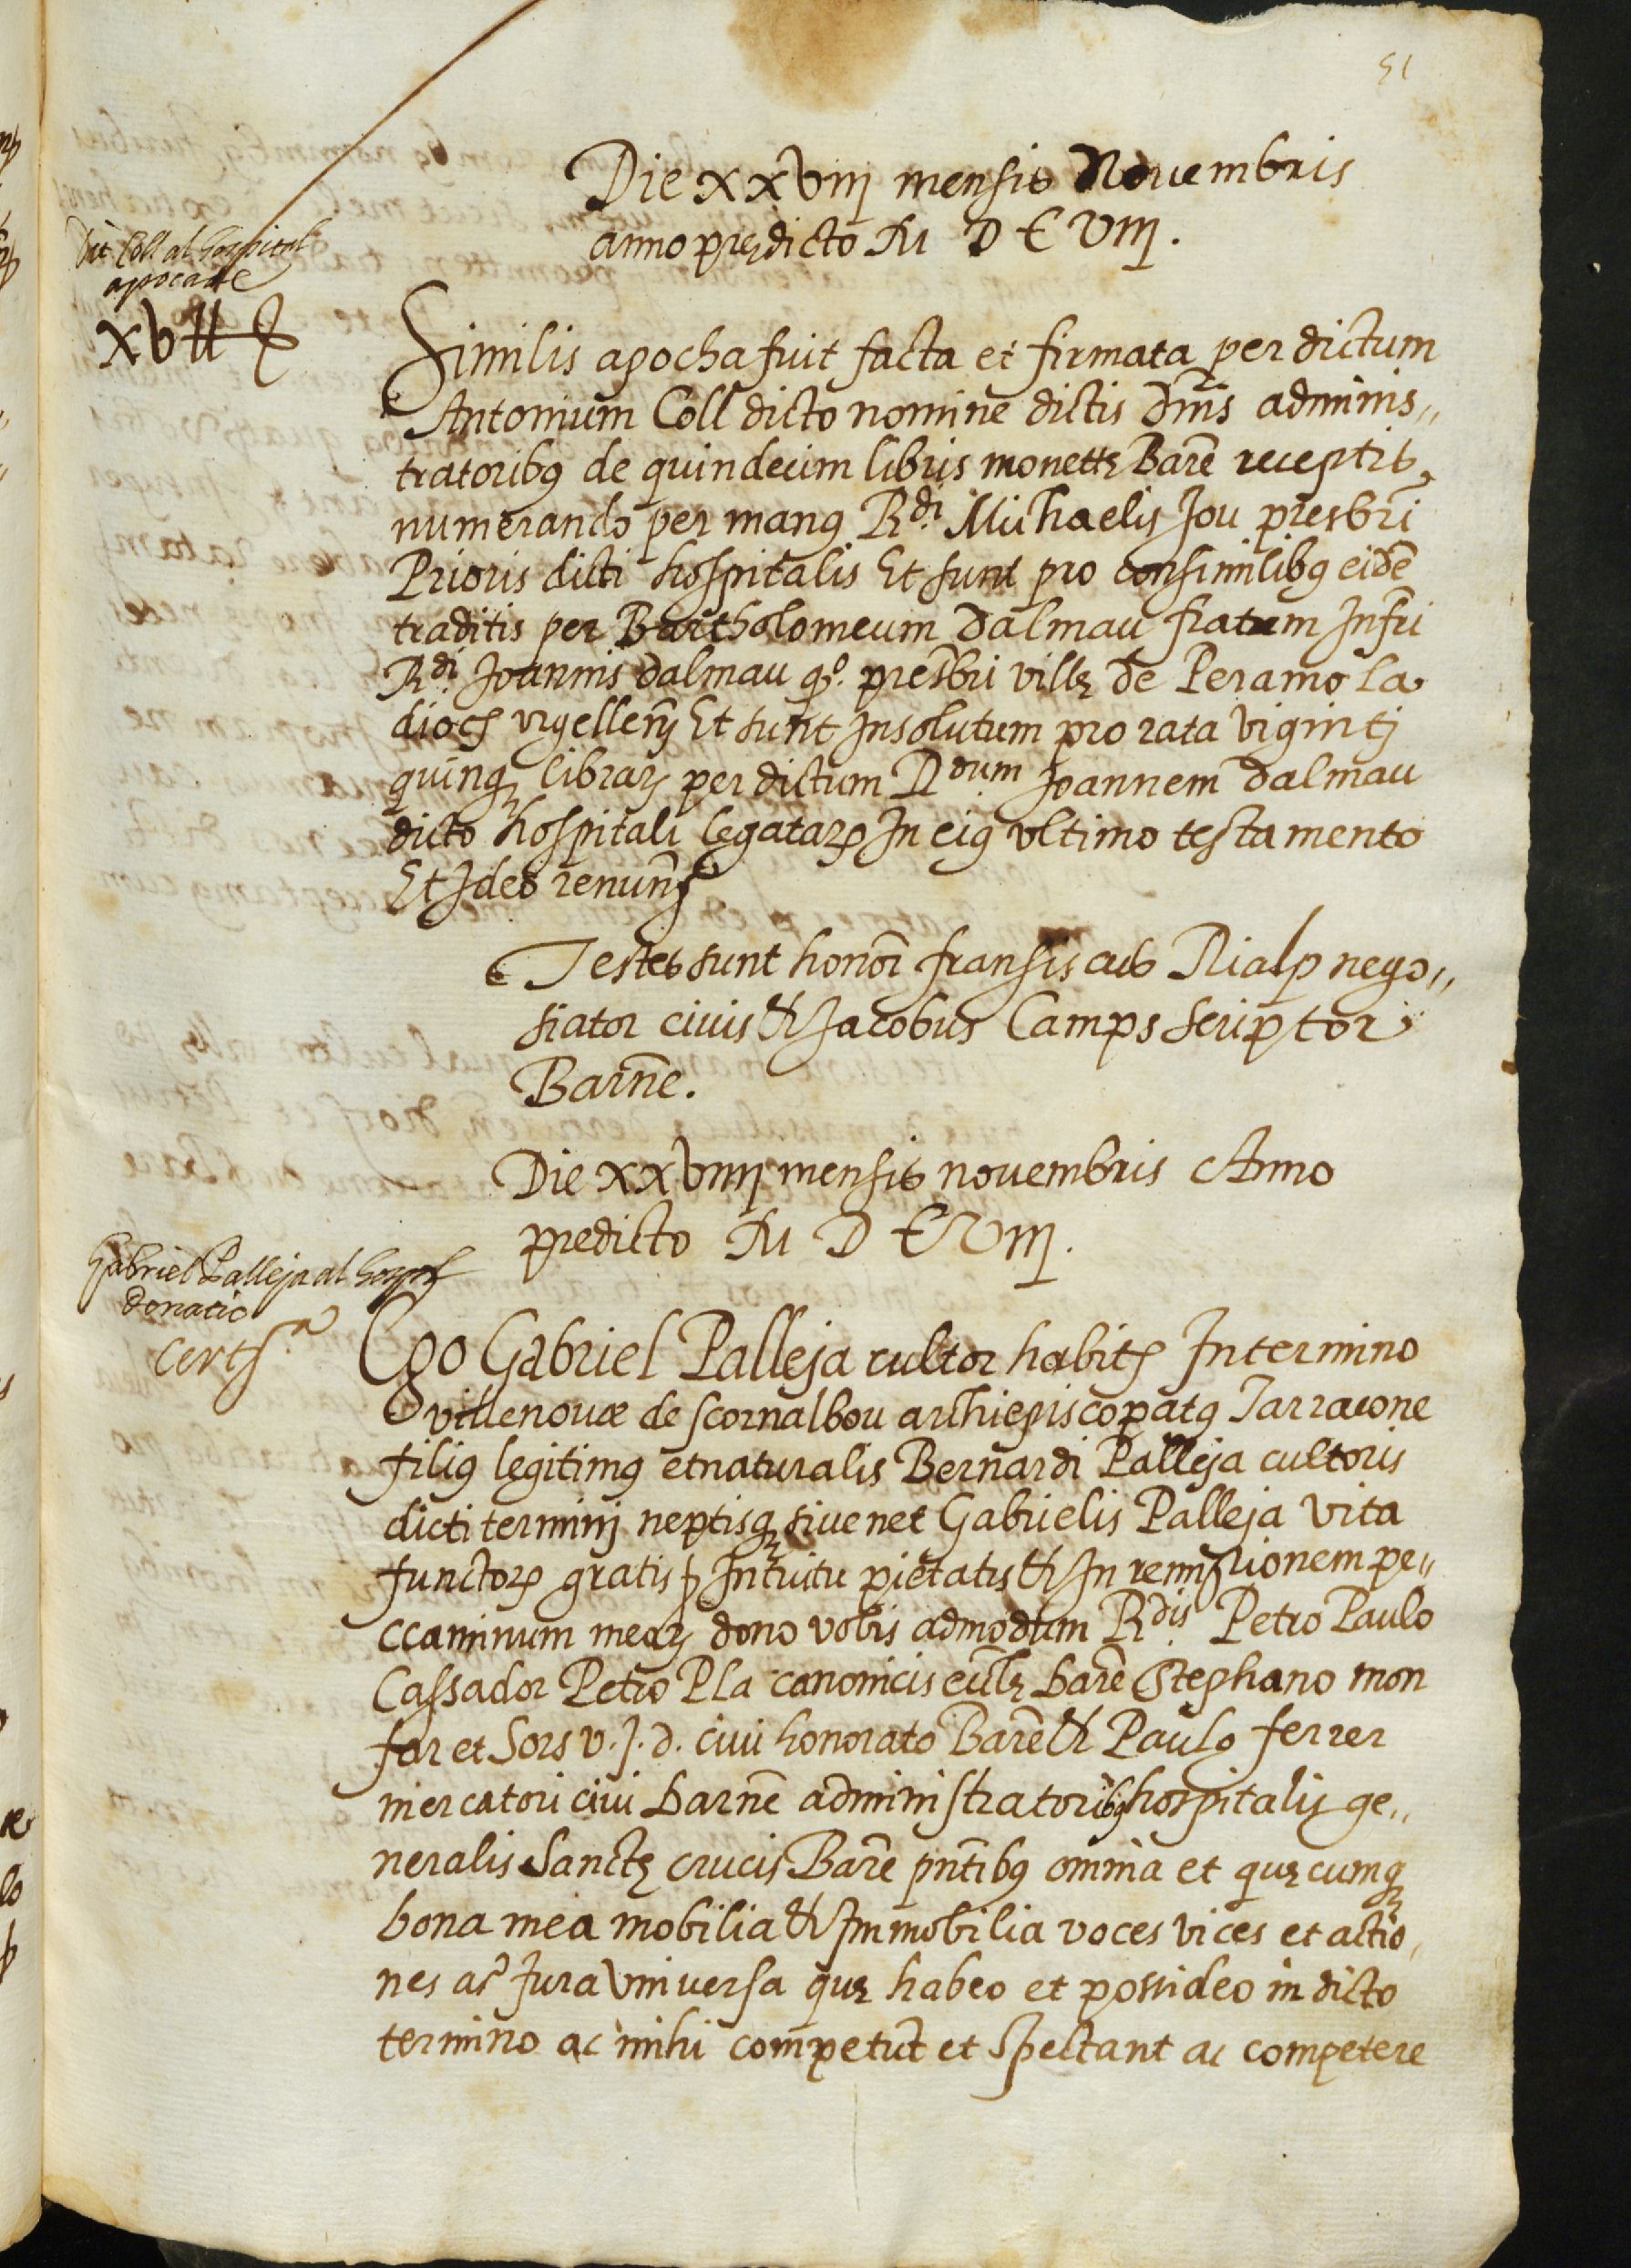 51
Die xxviij mensis Novembris
anno predicto M D C viij.
Dit Coll al hospital
apoca de
xv ll
Similis apocha fuit facta et firmata per dictum
Antonium Coll dicto nomine dictis dnis adminis„
tratoribꝯ de quindecim libris monetę Barñe receptis
numerando per manꝯ Rdi. Michaelis Jou presbri
Prioris dicti hospitalis Et sunt pro consimilibꝯ eidē
traditis per Bartholomeum dalmau fratrem Infri
Rdi. Joannis dalmau qo. presbri villę de Peramola
dioc̃ vrgelleñ Et sunt Insolutum pro rata viginti
quinqꝫ librarꝫ per dictum Rdum Joannem dalmau
dicto hospitali legatarꝫ In eiꝯ vltimo testamento
Et Ideo renunͥ
Testes sunt honor̃ fransiscus Rialp nego„
siator civis et Jacobus Camps scriptor
Barñe.
Die xxviiij mensis novembris Anno
predicto M D C viij.
Gabriel Palleja al hospl
donatio
certfa.
Ego Gabriel Palleja cultor habitꝭ In termino
villenouæ de scornalbou archiepiscopatꝯ Tarracone
filiꝯ legitimꝯ et naturalis Bernardi Palleja cultoris
dicti terminj neptisqꝫ siue net Gabrielis Palleja vita
functorꝫ gratis ꝑ Intuitu pietatis et In remissionem pe„
ccaminum mearꝫ dono vobis admodum Rdis. Petro Paulo
Cassador Petro Pla canonicis ecclę barñe Stephano mon
far et Sors v. J. d. ciui honorato Barñe et Paulo ferrer
mercatori ciui barñe administratoribꝯ hospitalis ge„
neralis Sanctę crucis Barñe pñtibꝯ omnia et quęcumqꝫ
bona mea mobilia et Immobilia voces vices et actio„
nes ac Jura vniversa quę habeo et possideo in dicto
termino ac mihi competũt et spectant ac competere